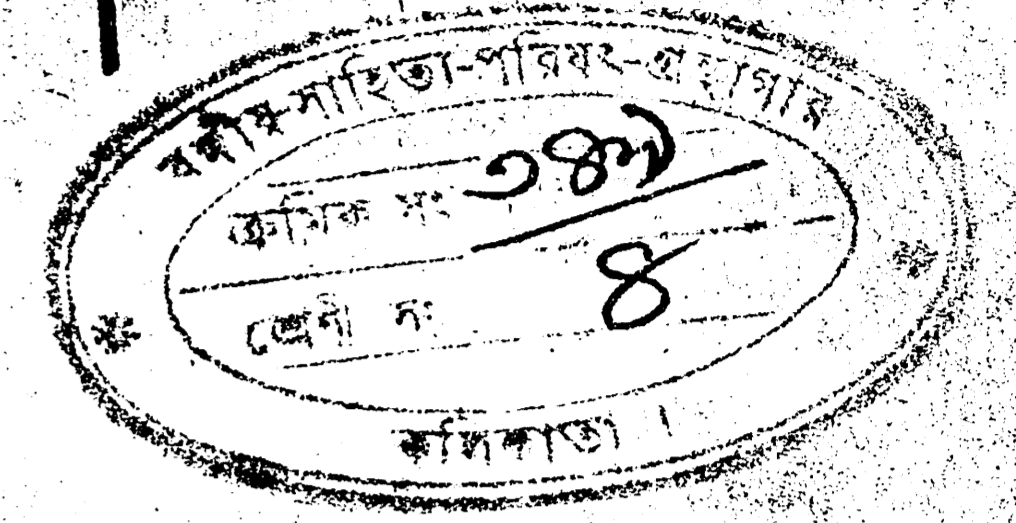 বঙ্গীয়-সাহিত্য-পরিষৎ-গ্রন্থাগার
ক্রমিক নং
শ্রেণী নং ৪
কলিকাতা ।